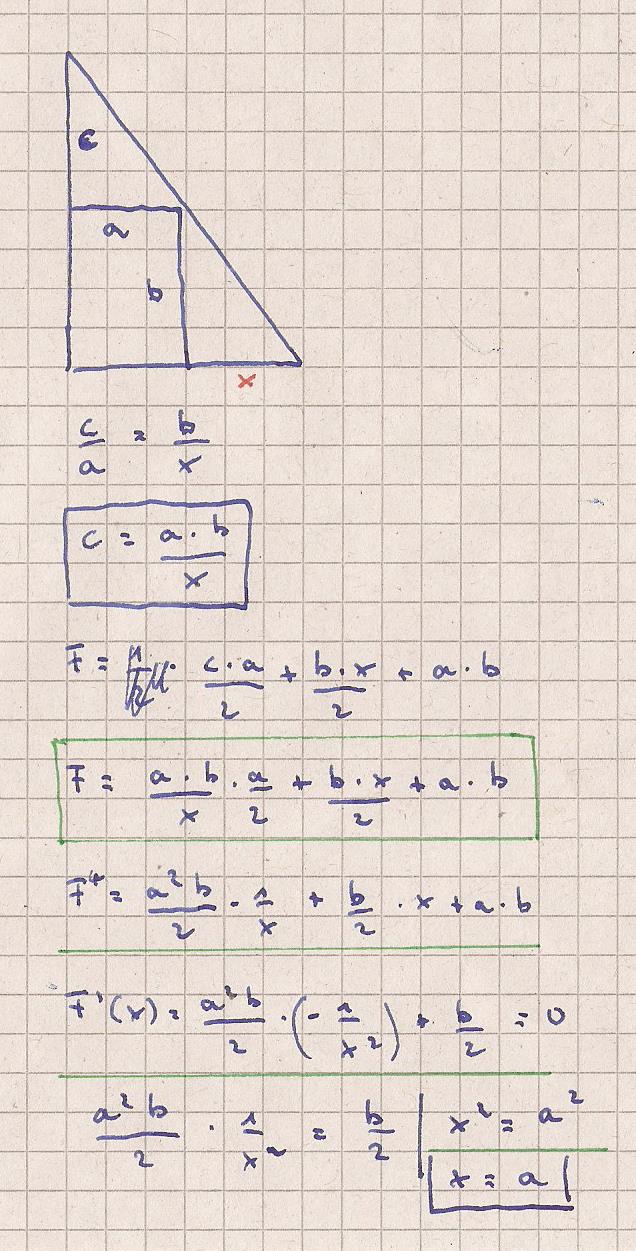 c
a
b
x
c/a = b/x
c = a · b / x
F = c · a / 2 + b · x / 2 + a · b
F = a · b / x · a / 2 + b · x / 2 + a · b
F = a² b / 2 · 1 / x + b / 2 · x + a · b
F'(x) = a² b / 2 · (- 1 / x²) + b / 2 = 0
a² b / 2 · 1 / x² = b / 2 | x² = a²
x = a